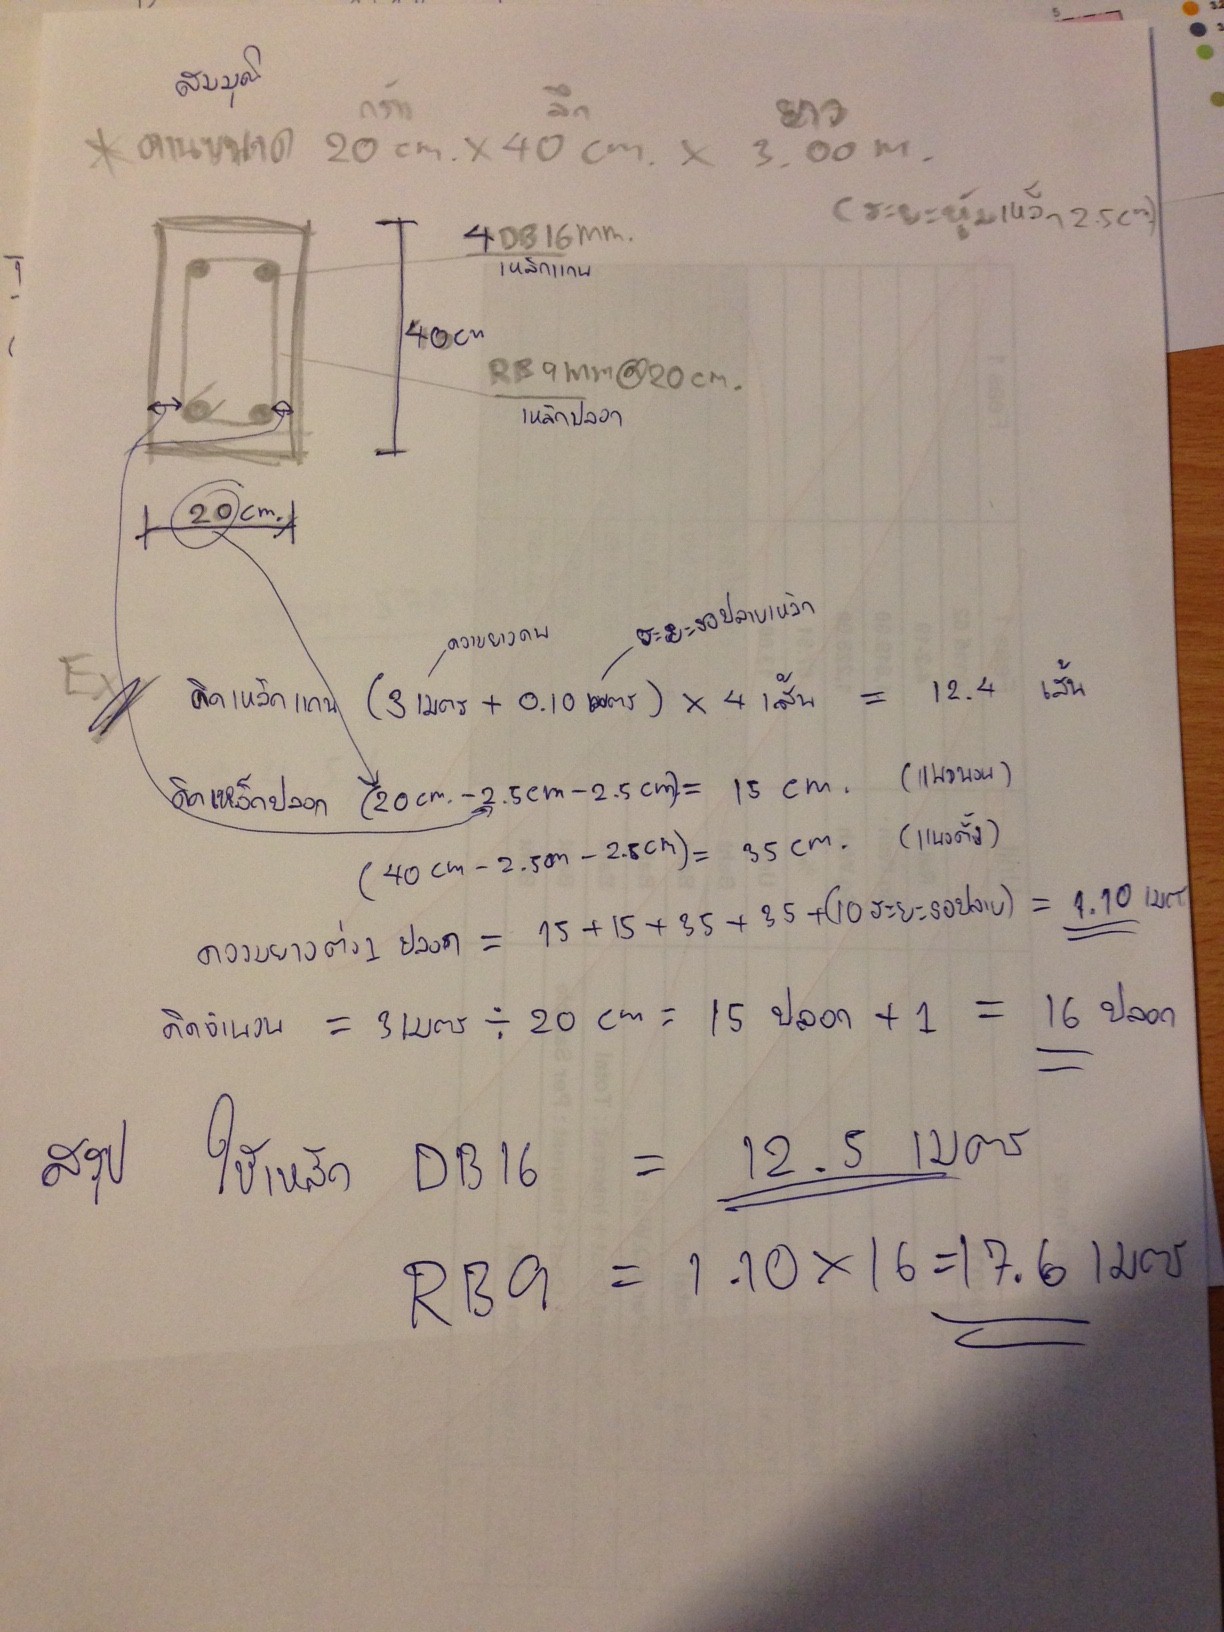 สมมุติ
กว้าง ลึก ยาว
* คานขนาด 20 cm. × 40 cm. × 3.00 m.
(ระยะหุ้มเหล็ก 2.5 cm)
4DB16mm.
เหล็กแกน
40cm
RB9mm@20cm.
เหล็กปลอก
20cm.
ความยาวคาน ระยะงอปลายเหล็ก
Ex
คิดเหล็กแกน (3 เมตร + 0.10 เมตร) × 4 เส้น = 12.4 เส้น
คิดเหล็กปลอก (20cm. - 2.5cm - 2.5cm) = 15 cm. (แนวนอน)
(40cm - 2.5cm - 2.5cm) = 35cm. (แนวตั้ง)
ความยาวต่อ 1 ปลอก = 15+15+35+35+(10 ระยะงอปลาย) = 1.10 เมตร
คิดจำนวน = 3 เมตร ÷ 20 cm = 15 ปลอก + 1 = 16 ปลอก
สรุป ใช้เหล็ก DB16 = 12.5 เมตร
RB9 = 1.10 × 16 = 17.6 เมตร